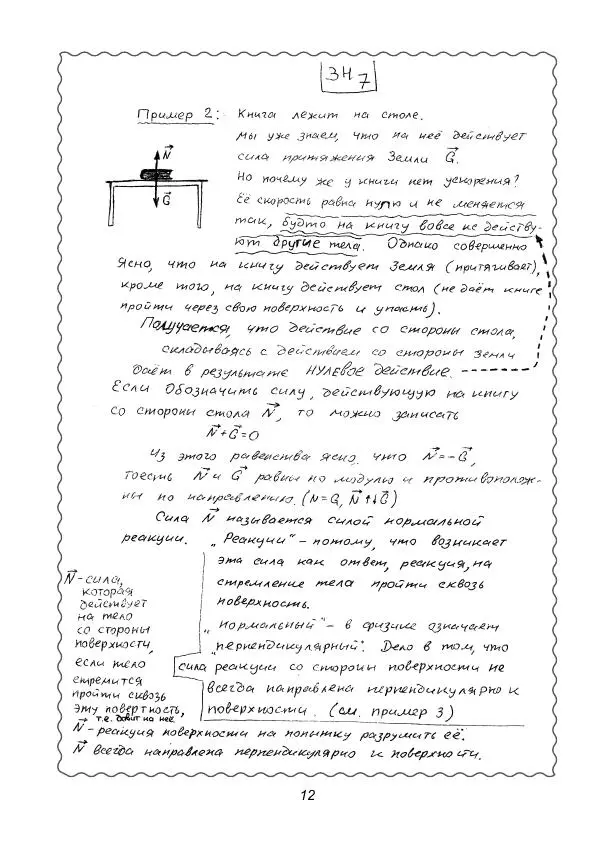 ЗН 7
Пример 2: Книга лежит на столе.
Мы уже знаем, что на неё действует
сила притяжения Земли G⃗.
Но почему же у книги нет ускорения?
Её скорость равна нулю и не меняется
так, будто на книгу вовсе не действу-
ют другие тела. Однако совершенно
N⃗
G⃗
ясно, что на книгу действует Земля (притягивает),
кроме того, на книгу действует стол (не даёт книге
пройти через свою поверхность и упасть).
Получается, что действие со стороны стола,
складываясь с действием со стороны Земли
даёт в результате НУЛЕВОЕ действие.
Если обозначить силу, действующую на книгу
со стороны стола N⃗, то можно записать
N⃗+G⃗=0
Из этого равенства ясно, что N⃗=-G⃗,
тоесть N⃗ и G⃗ равны по модулю и противополож-
ны по направлению. (N=G, N⃗↑↓G⃗)
Сила N⃗ называется силой нормальной
реакции. „Реакции“ - потому, что возникает
эта сила как ответ, реакция, на
стремление тела пройти сквозь
поверхность.
„Нормальный“ - в физике означает
„перпендикулярный“. Дело в том, что
сила реакции со стороны поверхности не
всегда направлена перпендикулярно к
поверхности. (см. пример 3)
N⃗ - сила,
которая
действует
на тело
со стороны
поверхности,
если тело
стремится
пройти сквозь
эту повертность,
т.е. давит на неё
N⃗ - реакция поверхности на попытку разрушить её.
N⃗ всегда направлена перпендикулярно к поверхности.
12